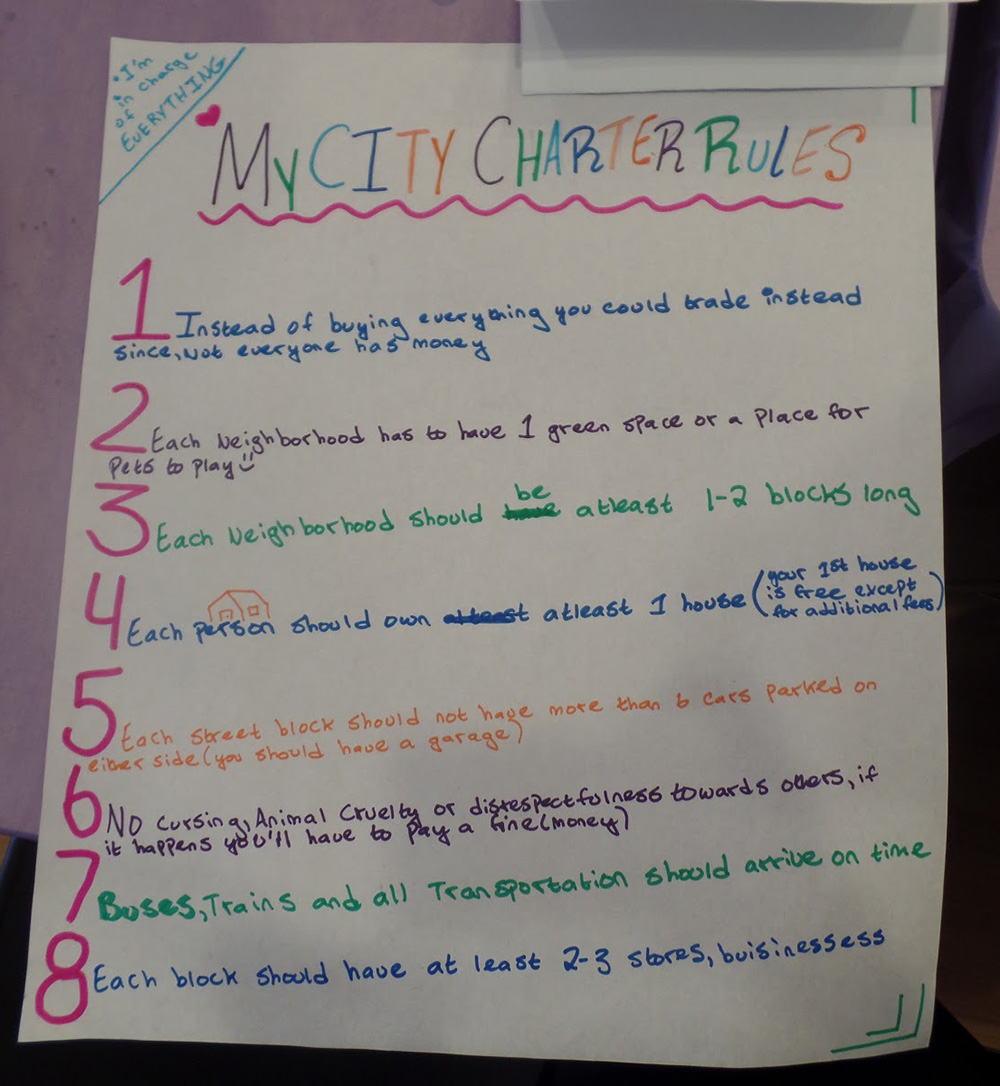 • I'm
in charge
of
EVERYTHING
MY CITY CHARTER RULES
1 Instead of buying everything you could trade instead
since, Not everyone has money
2 Each Neighborhood has to have 1 green space or a Place for
Pets to play
3 Each Neighborhood should be atleast 1-2 blocks long
4 Each person should own atleast 1 house (your 1st house
is free except
for additional fees)
5 Each street block should not have more than 6 cars parked on
either side (you should have a garage)
6 NO cursing, Animal Cruelty or disrespectfulness towards others, if
it happens you'll have to pay a fine (money)
7 Buses, Trains and all Transportation should arrive on time
8 Each block should have at least 2-3 stores, buisinessess